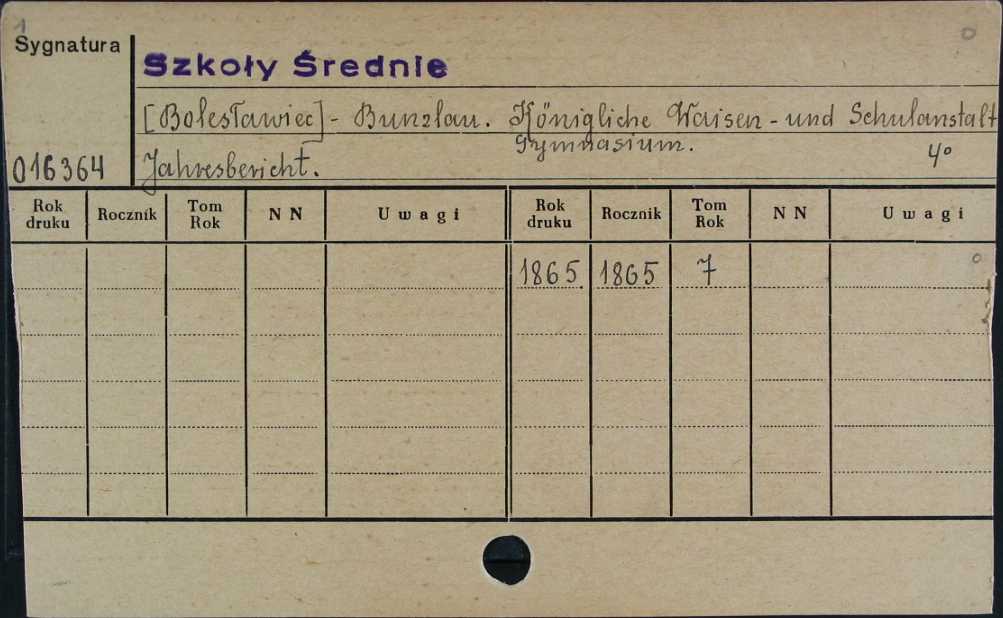 1
Sygnatura
Szkoły Średnie
[Bolesławiec] - Bunzlau. Königliche Waisen - und Schulanstalt
Gymnasium.
016364
Jahresbericht.
4°
Rok druku Rocznik Tom Rok N N Uwagi Rok druku Rocznik Tom Rok N N Uwagi
1865. 1865 7